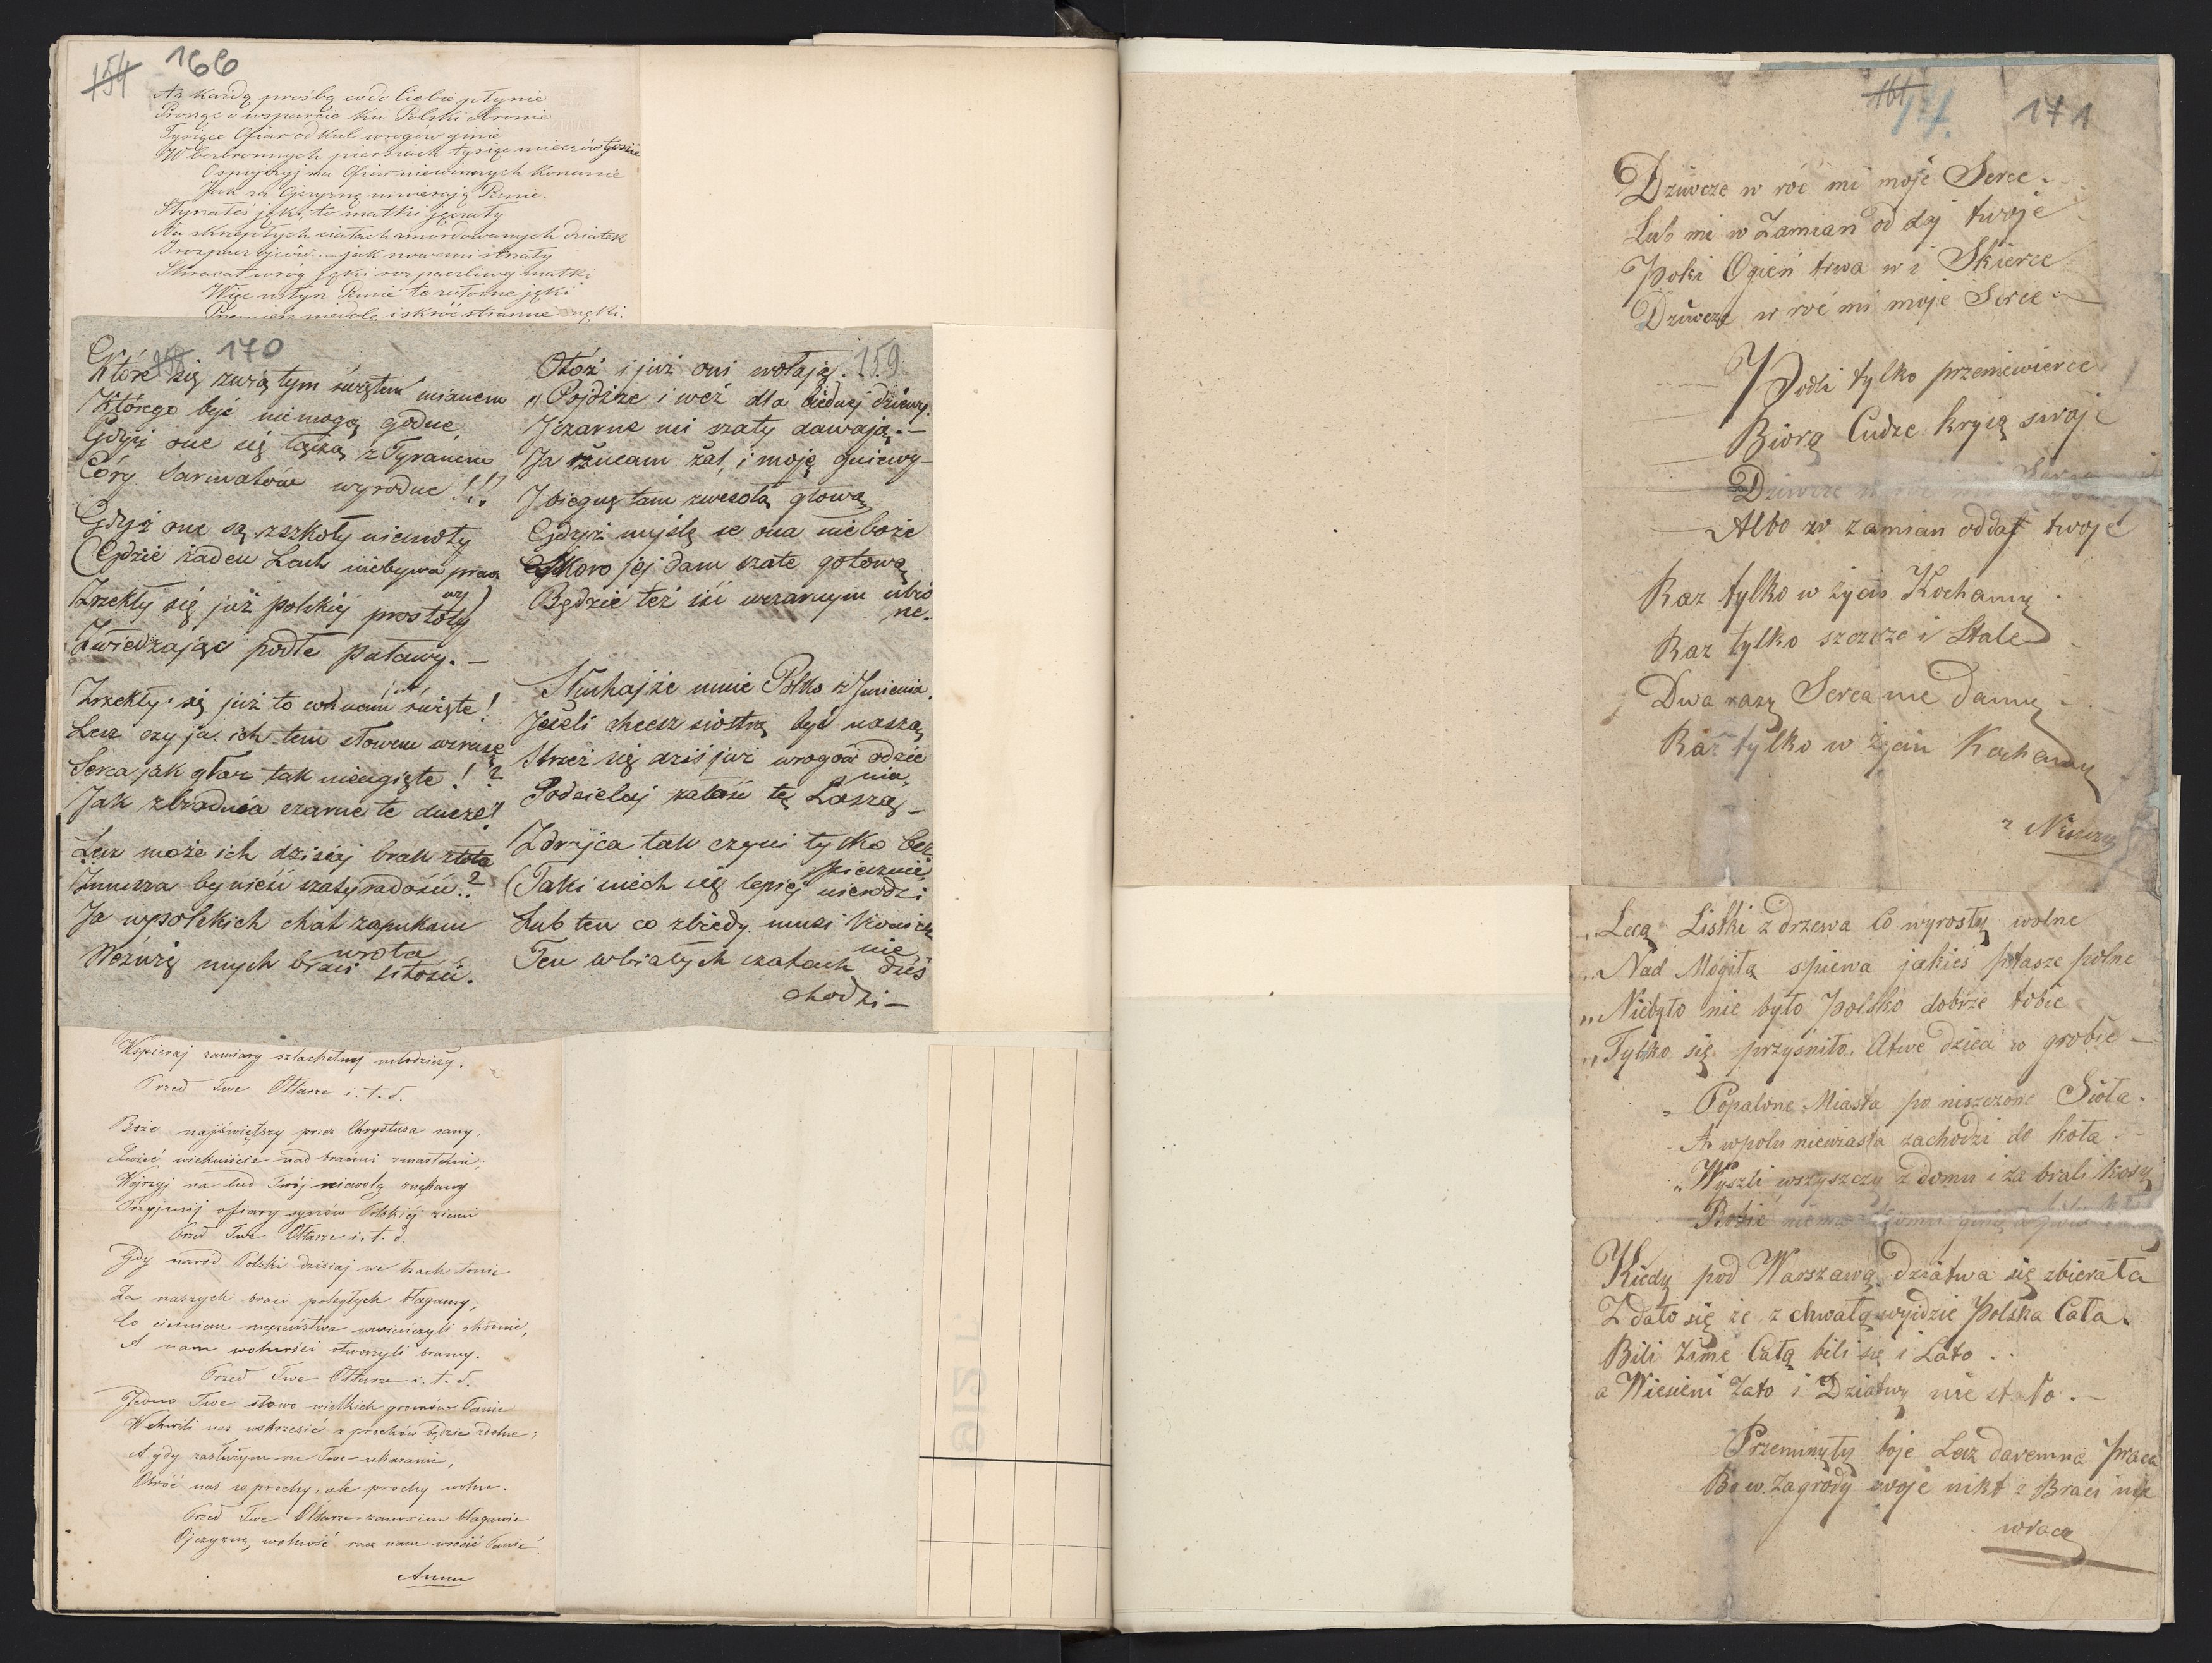 154 166
Az każdą prośbą co do Ciebie płynie
Prosząc o wsparcie ku Polski stronie
Tysiące Ofiar od kul wrogów ginie
W bezbronnych piersiach tysiące mieczów tonie
Ospojrzyj na Ofiar niewinnych konanie
Jak za Ojczyznę umierają Panie.
Słyszałeś jęki, to matki jęczały
Na skrzepłych ciałach mordowanych dziatek
I rozpacz ojców. – jak nowemi strzały
wróg jęki rozpaczliwej matki
Więc usłysz Panie te żałosne jęki
niewolę i skróć straszne męki.
158 170
Które się zwią tym świętem mianem
Którego być niemogą godne
Gdyż one się łączą z Tyranem
Córy Sarmatów wyrodne!!!
Gdyż one są z szkoły niemoty
(Gdzie żaden Lach niebywa praw
wy)
Zrzekły się już polskiej prostoty
Zwiedzając podłe putawy. –
Zrzekły się już to co nam jest święte!
Lecz czy ja ich tem słowem wzruszę
Serca jak głaz tak nieugięte!?
Jak zbrodnia czarne te dusze?
Lecz może ich dzisiaj brak złota
Zmusza by nieść szaty radości.?
Ja w polskich chat zapukam
wrota
Wezwię mych braci litości.
Otóż i już oni wołają. 159
„Pojdźże i weź dla biednej dziewy.
I czarne mi szaty dawają. –
Ja rzucam żal, i moje gniewy –
I biegnę tam z wesołą głową
Gdyż myślę że ona nieboże
Skoro jej dam szatę gotową
Będzie też iść w czarnym ubio
ne.
Słuchajże mnie Polko z Imienia.
Jeżeli chcesz siostrą być naszą
Strzeż się dziś już wrogów odzie
nia,
Podzielaj żałość tę Laszą –
Zdrajca tak czyni tylko bez
piecznie,
(Taki niech się lepiej nierodzi
Lub ten co z biedy musi koniecz
nie
Ten w białych szatach dziś
chodzi –
Wspieraj zamiary szlachetnej młodzieży.
Przed Twe Ołtarze i. t. d.
Boże najświętszy przez Chrystusa rany,
Świeć wiekuiście nad braćmi zmarłemi,
Wejrzyj na lud Twój niewolą znękany
Przyjmij ofiary synów Polskiej ziemi
Przed Twe Ołtarze i. t. d.
Gdy naród Polski dzisiaj we łzach tonie
Za naszych braci poległych błagamy;
Co cierniem męczeństwa uwieńczyli skronie,
A nam wolności otworzyli bramy.
Przed Twe Ołtarze i. t. d.
Jedno Twe słowo wielkich gromów Panie
W chwili nas wskrzesić z prochów będzie zdolne;
A gdy zasłużym na Twe ukaranie,
Obróć nas w prochy, ale prochy wolne.
Przed Twe Ołtarze zanosim błaganie
Ojczyznę, wolność racz nam wrócić Panie!
Amen
161 171
Dziwcze w róć mi moje Serce.
Lub mi w Zamian od daj twoje
Poki Ogień trwa w i Skierce
Dziwcze w róć mi moje Serce –
Podli tylko przeniewierce
Biorą Cudze kryią swoje
Dziwcze w róć mi Serce
Albo w zamian oddaj twoje
Raz tylko w życiu Kochamy.
Raz tylko szczerze i Stale
Dwa razy Serca nie damy.
Raz tylko w życiu Kochamy
„Lecą Listki z drzewa Co wyrosły wolne
„Nad Mogiłą spiewa jakieś ptasze polne
„Niebyło nie było Polsko dobrze tobie
„Tylko się przyśniło. Atwe dzieci w grobie –
„Popalone Miasta po niszczone Sioła.
A w polu niewiasta zachodzi do koła. –
„Wyszli wszyszczy z domu i za brali kosy
Robić niema komu giną w polu
Kiedy pod Warszawą dziatwa się zbierała
Z dało się że z chwałą wyidzie Polska Cała.
Bili Zimę Całą bili się i Lato.
a Wiesieni Zato i Dziatwy nie stało. –
Przeminęły boje Lecz daremna Praca
Bo w Zagrody swoje nikt z Braci nie
wraca